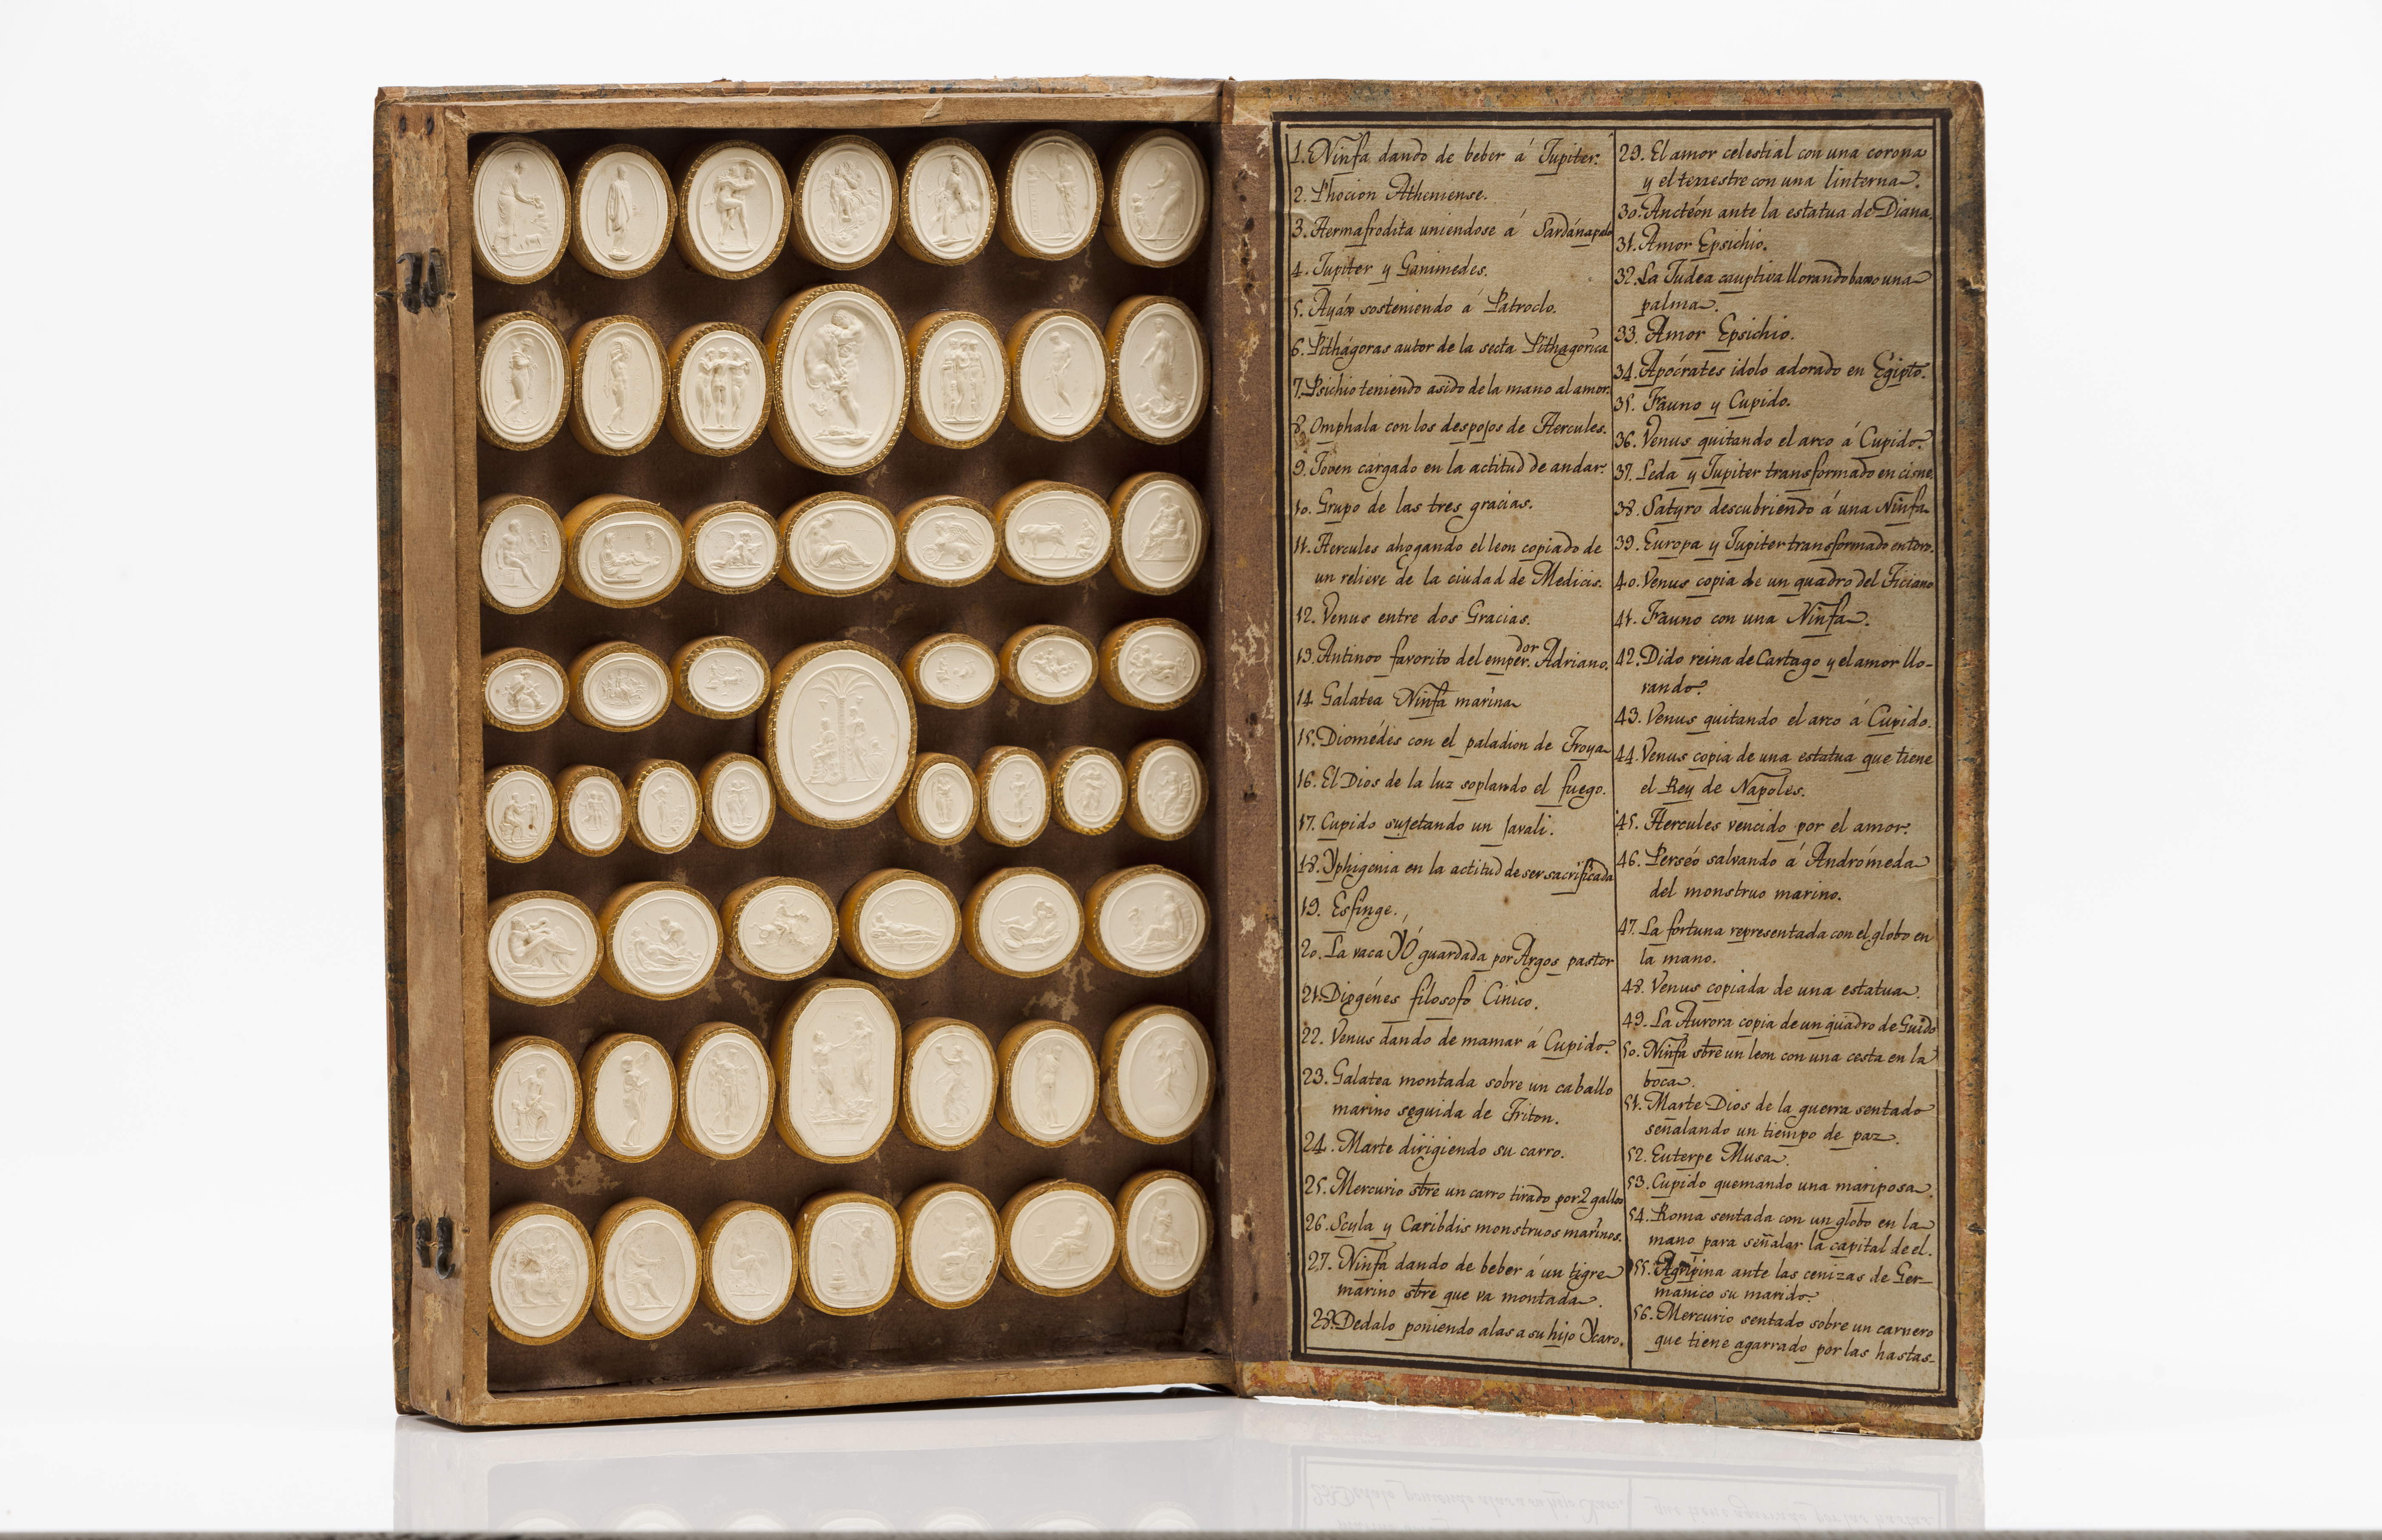 1. Ninfa dando de beber á Jupiter.
2. Phocion Atheniense.
3. Hermafrodita uniendose á Sardánapalo
4. Jupiter y Ganimedes.
5. Ayáx sosteniendo á Patroclo.
6. Pithágoras autor de la secta Pithagórica
7. Psichio teniendo asido de la mano al amor.
8. Omphala con los despojos de Hercules.
9. Joven cargado en la actitud de andar.
10. Grupo de las tres gracias.
11. Hercules ahogando el leon copiado de
un relieve de la ciudad de Medicis.
12. Venus entre dos Gracias.
13. Antinoo favorito del emper.dor Adriano.
14. Galatea Ninfa marina
15. Diomédes con el paladion de Troya
16. El Dios de la luz soplando el fuego.
17. Cupido sujetando un Javali.
18. Yphigenia en la actitud de ser sacrificada
19. Esfinge.
20. La vaca YÓ guardada por Argos pastor
21. Diogénes filosofo Cinico.
22. Venus dando de mamar á Cupido.
23. Galatea montada sobre un caballo
marino seguida de Triton.
24. Marte dirigiendo su carro.
25. Mercurio stre un carro tirado por 2 gallos
26. Scyla y Caribdis monstruos marinos.
27. Ninfa dando de beber á un tigre
marino stre que va montada.
28. Dedalo poniendo alas a su hijo Ycaro.
29. El amor celestial con una corona
y el terrestre con una linterna.
30. Anctéón ante la estatua de Diana.
31. Amor Epsichio.
32. La Judea cauptiva llorando baxo una
palma.
33. Amor Epsichio.
34. Apócrates idolo adorado en Egipto.
35. Fauno y Cupido.
36. Venus quitando el arco á Cupido.
37. Leda y Jupiter transformado en cisne.
38. Satyro descubriendo á una Ninfa
39. Europa y Jupiter transformado en toro.
40. Venus copia de un quadro del Ticiano
41. Fauno con una Ninfa.
42. Dido reina de Cartago y el amor llo-
rando.
43. Venus quitando el arco á Cupido.
44. Venus copia de una estatua que tiene
el Rey de Napoles.
45. Hercules vencido por el amor.
46. Perséo salvando á Andrómeda
del monstruo marino.
47. La fortuna representada con el globo en
la mano.
48. Venus copiada de una estatua.
49. La Aurora copia de un quadro de Guido
50. Ninfa stre un leon con una cesta en la
boca.
51. Marte Dios de la guerra sentado
señalando un tiempo de paz.
52. Euterpe Musa.
53. Cupido quemando una mariposa.
54. Roma sentada con un globo en la
mano para señalar la capital de el.
55. Agripina ante las cenizas de Ger-
manico su marido.
56. Mercurio sentado sobre un carnero
que tiene agarrado por las hastas.